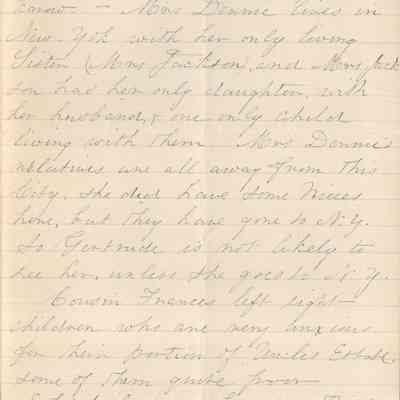 know. — Mrs Dennie lives in
New-Yok with her only living
Sister (Mrs Jackson, and Mrs Jack
son has her only daughter, with
her husband, & one only child
living with them Mrs Dennie's
relatives are all away from this
City. she did have some Nieces
here, but they have gone to N.Y.
So Gertrude is not likely to
see her, unless she goes to N Y.
Cousin Frances left eight
children who are very anxious
for their portion of Uncles Estate.
some of them quite poor